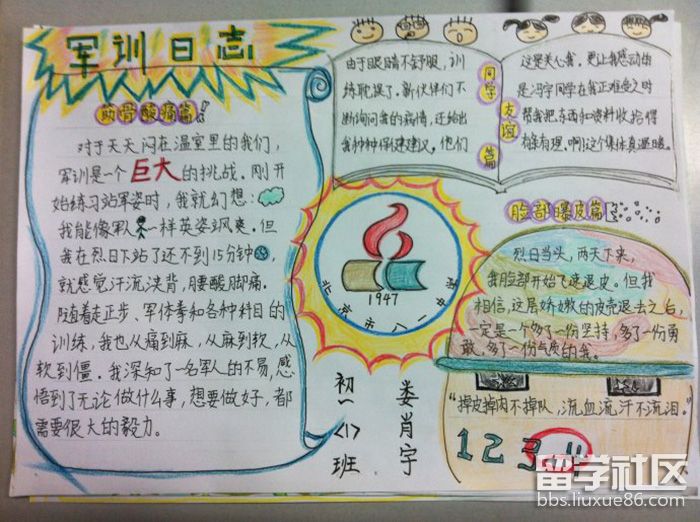 军训日志
筋骨酸痛篇!
对于天天闷在温室里的我们，
军训是一个巨大的挑战。刚开
始练习站军姿时，我就幻想：
我能像军人一样英姿飒爽。但
我在烈日下站了还不到15分钟，
就感觉汗流浃背，腰酸脚痛。
随着走正步、军体拳和各种科目的
训练，我也从痛到麻，从麻到软，从
软到僵。我深知了一名军人的不易，感
悟到了无论做什么事，想要做好，都
需要很大的毅力。
同学友谊篇
由于眼睛不舒服，训
练耽误了。新伙伴们不
断询问我的病情，还给出
我种种保健建议。他们
这里美人多。更让我感动的
是冯宇同学在我正难受之时
帮我把东西和资料收拾得
有条有理。啊!这个集体真温暖。
1947
北京市八一中学
初一<1>班
娄肖宇
脸部爆皮篇
烈日当头，两天下来，
我脸部开始飞速退皮。但我
相信，这层娇嫩的皮壳退去之后，
一定是一个多了一份坚持，多了一份勇
敢，多了一份气质的我。
“掉皮掉肉不掉队，流血流汗不流泪。”
1 2 3 4
留学社区
bbs.liuxue86.com